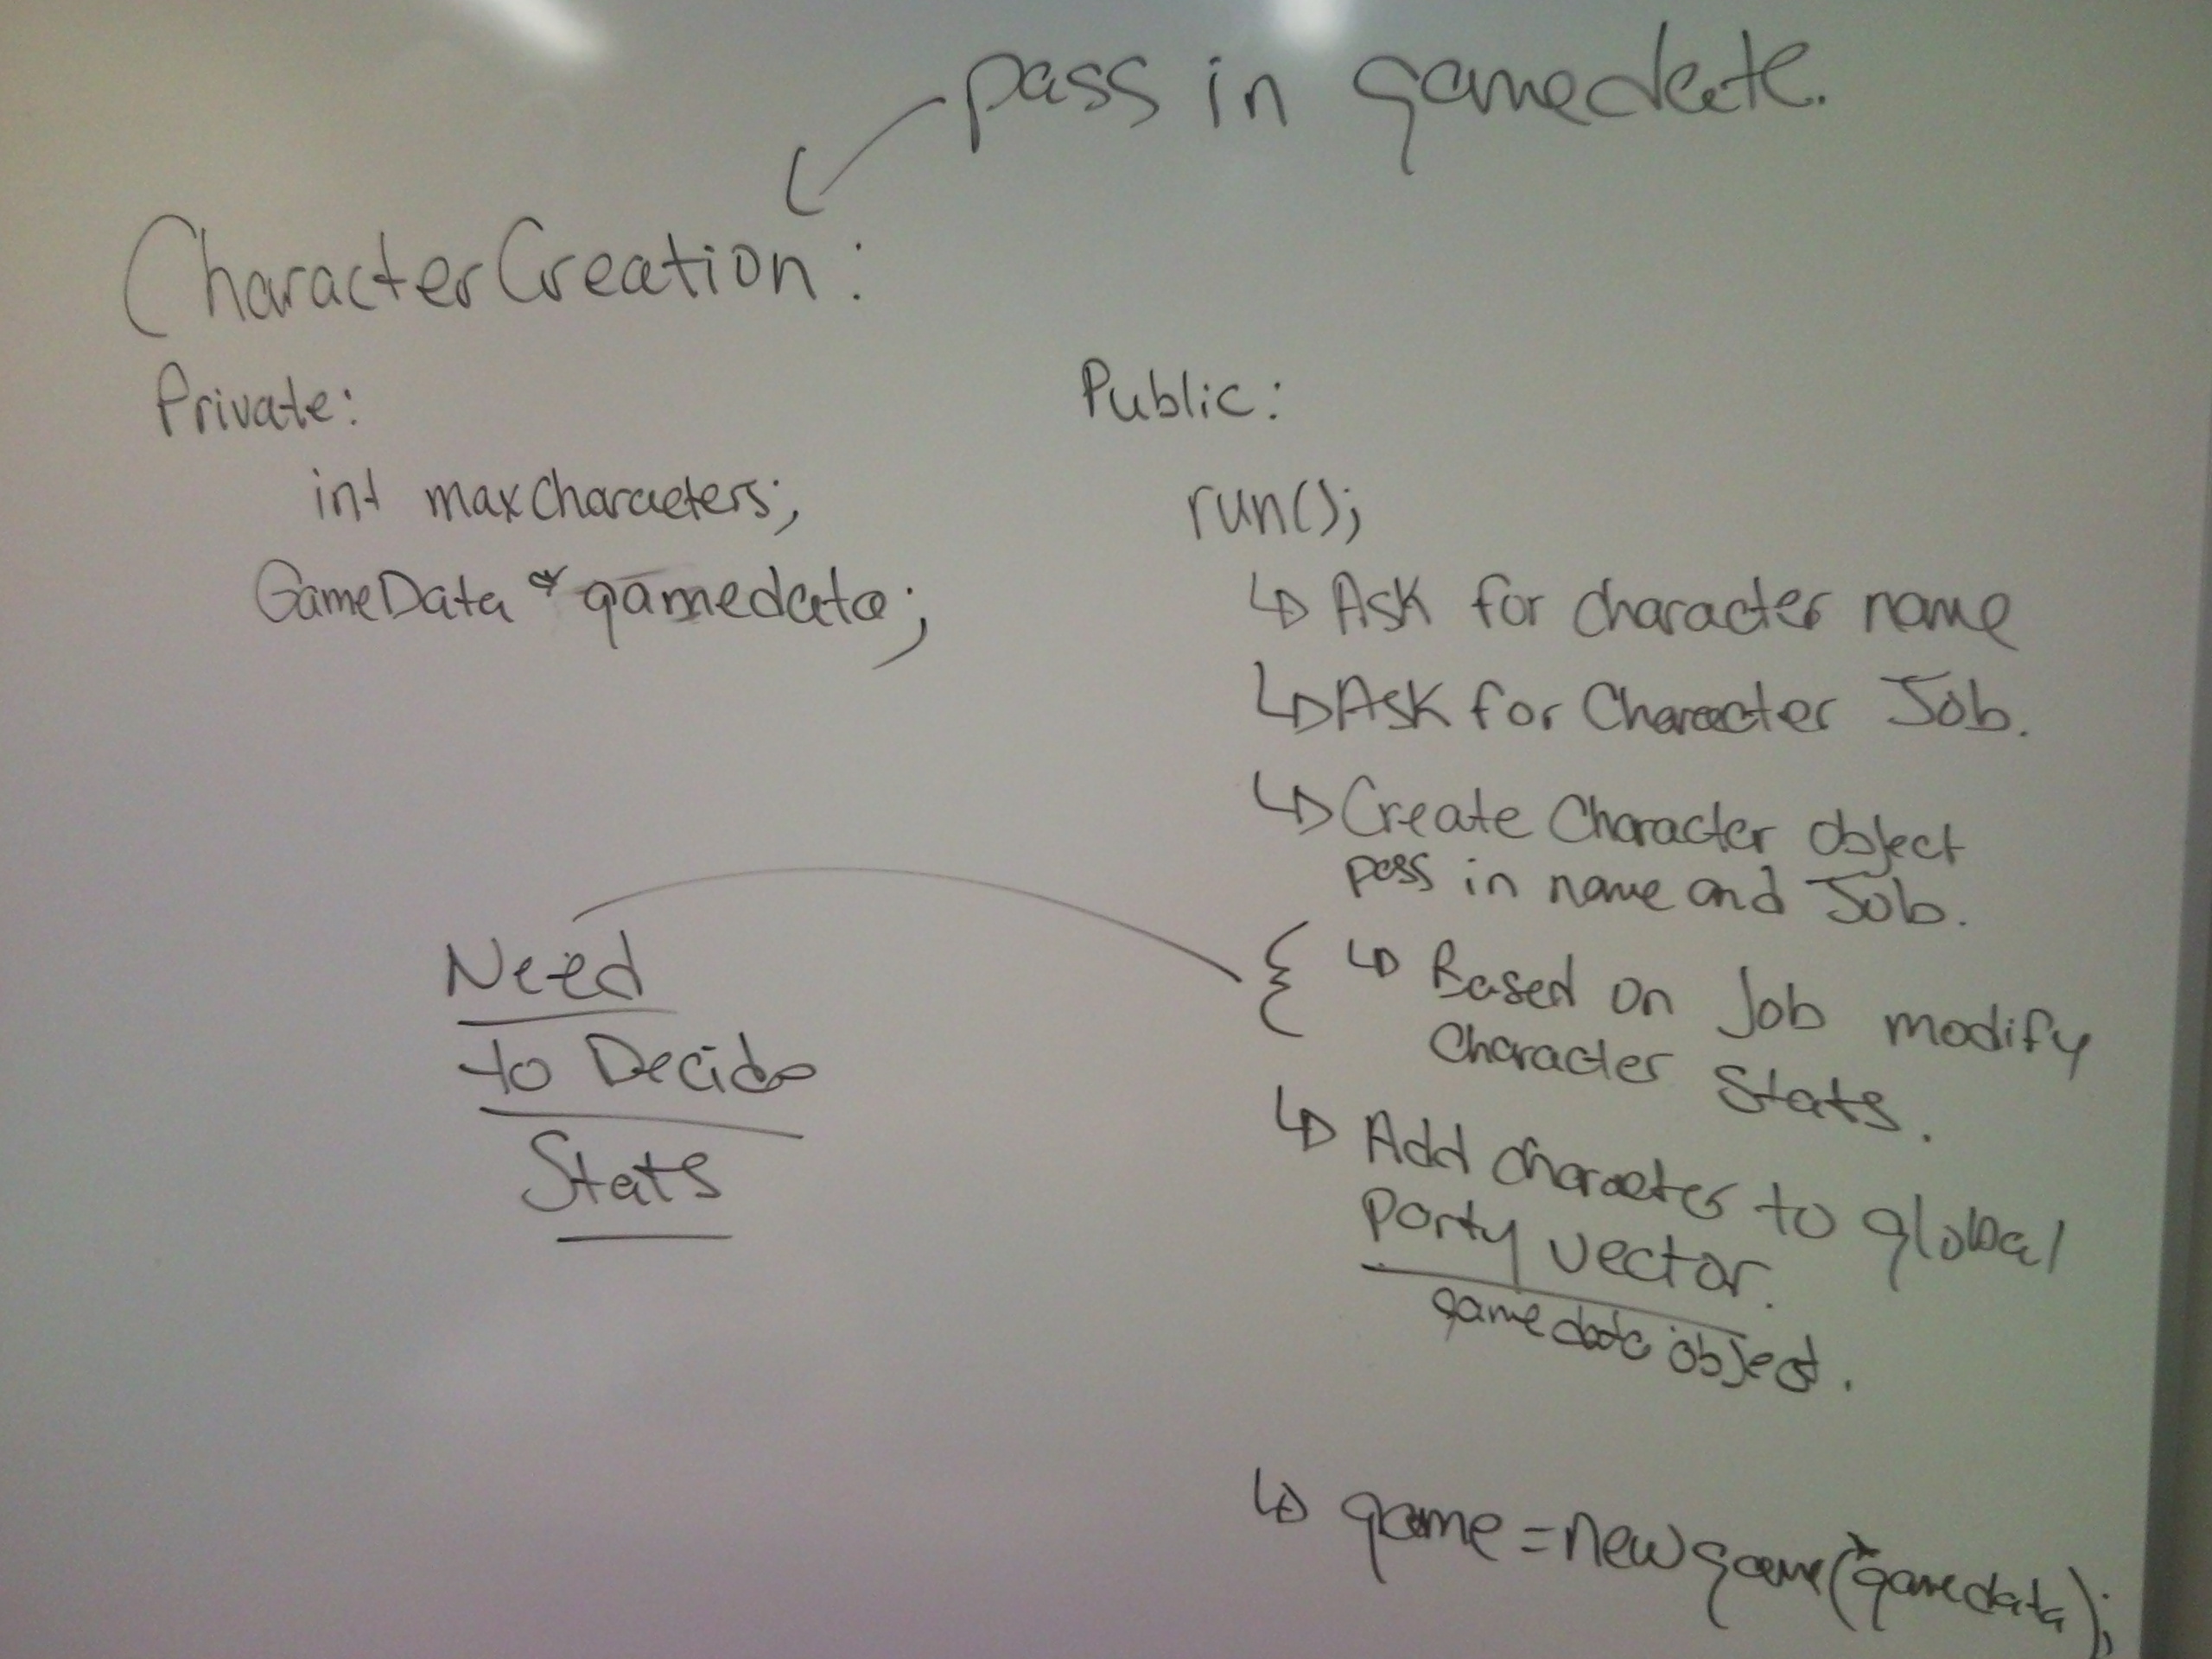 pass in gamedata.
CharacterCreation:
Private:
int maxcharacters;
GameData * gamedata;
Need
to Decide
Stats
Public:
run();
↳ Ask for character name
↳ Ask for Character Job.
↳ Create Character object
pass in name and Job.
{ ↳ Based on Job modify
Character Stats.
↳ Add character to global
party vector.
gamedata object.
↳ game = new game(*gamedata);